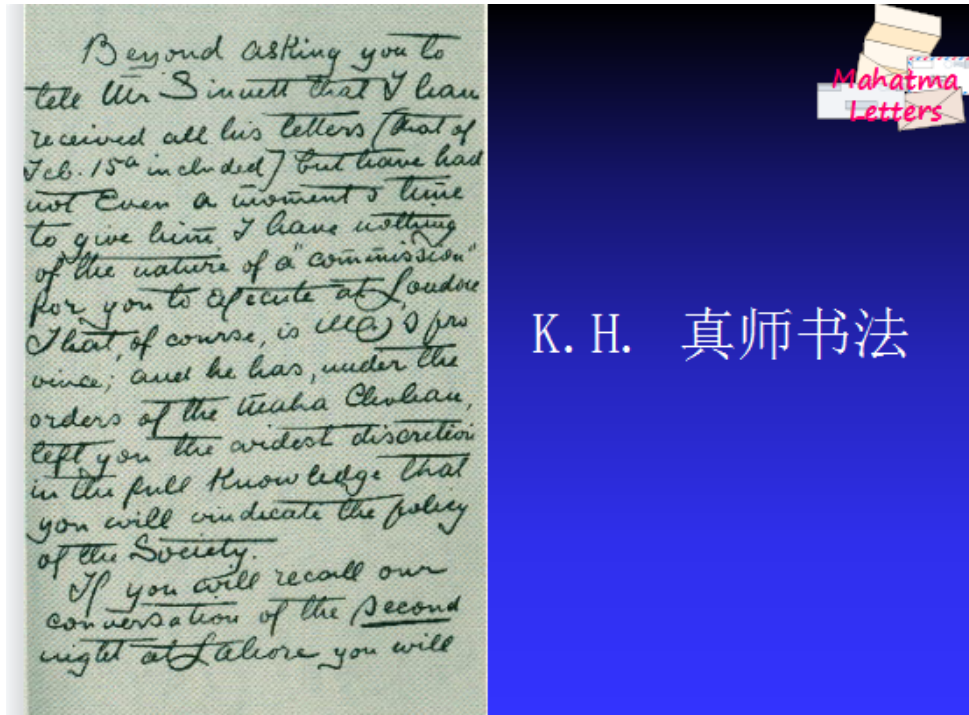 Beyond asking you to
tell Mr Sinnett that I have
received all his letters (that of
Feb. 15th included) but have had
not Even a moment's time
to give him I have nothing
of the nature of a "commission"
for you to execute at London
That, of course, is M's pro
vince; and he has, under the
orders of the Maha Chohan,
left you the widest discretion
in the full Knowledge that
you will vindicate the policy
of the Society.
If you will recall our
conversation of the second
night at Lahore you will
Mahatma
Letters
K.H. 真师书法